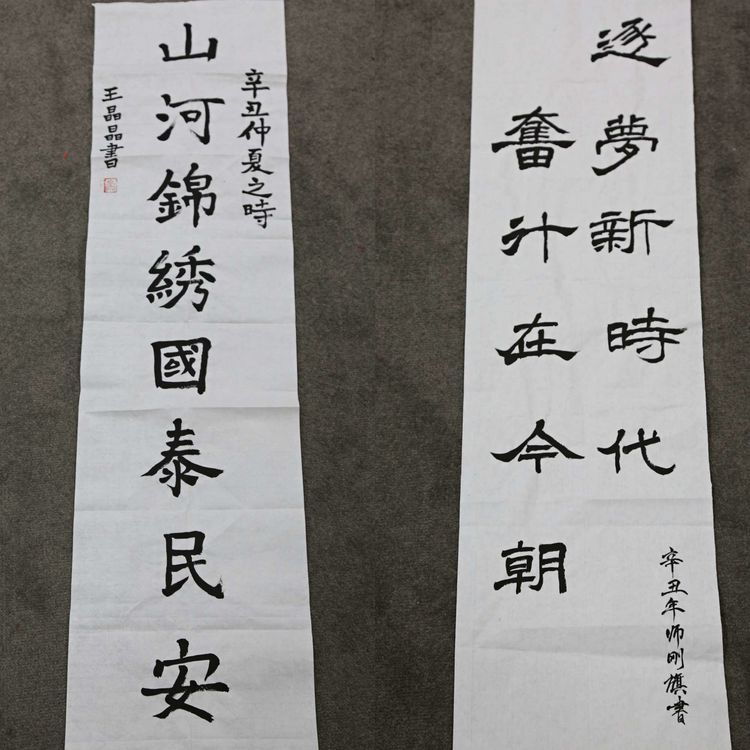 辛丑仲夏之時
山河錦綉國泰民安
王晶晶書
逐夢新時代
奮斗在今朝
辛丑年师刚旗書